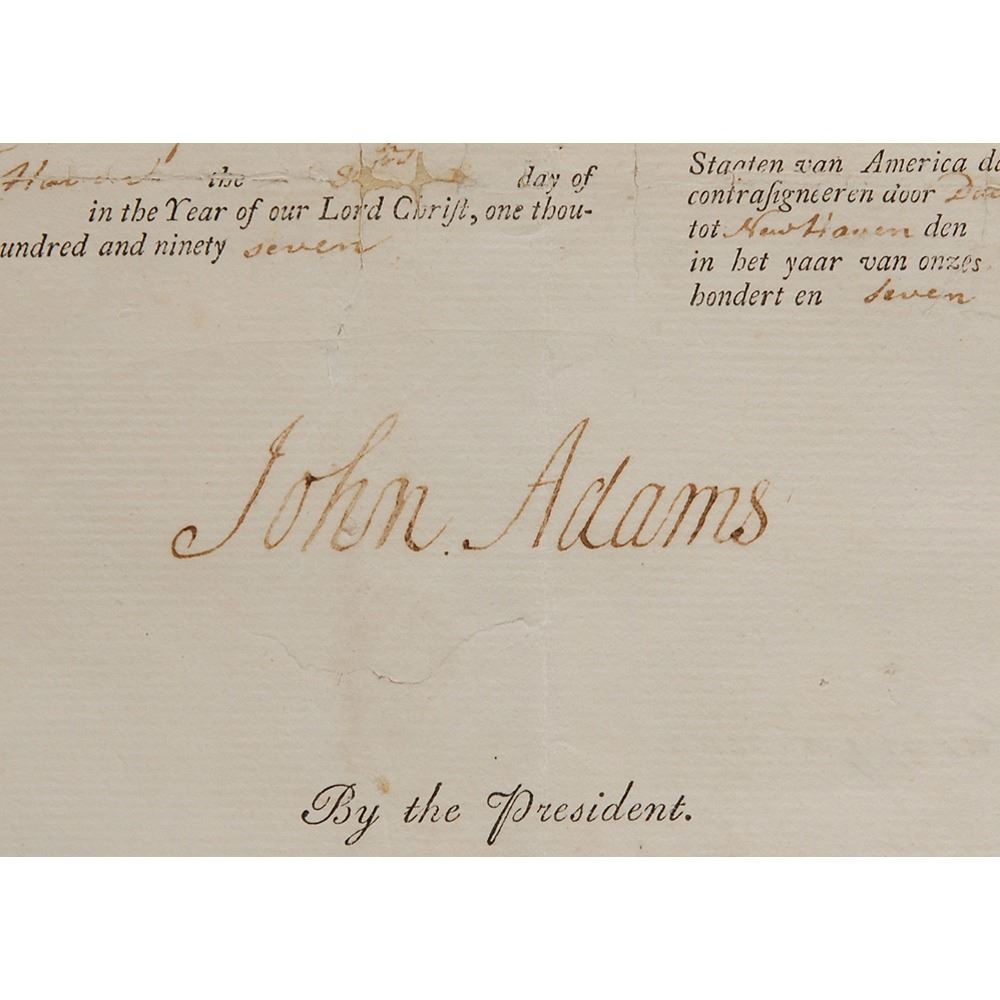 the day of
in the Year of our Lord Chriſt, one thou-
undred and ninety seven
Staaten van America
contraſigneeren door
tot New Haven den
in het yaar van onzes
hondert en seven
John Adams
By the President.